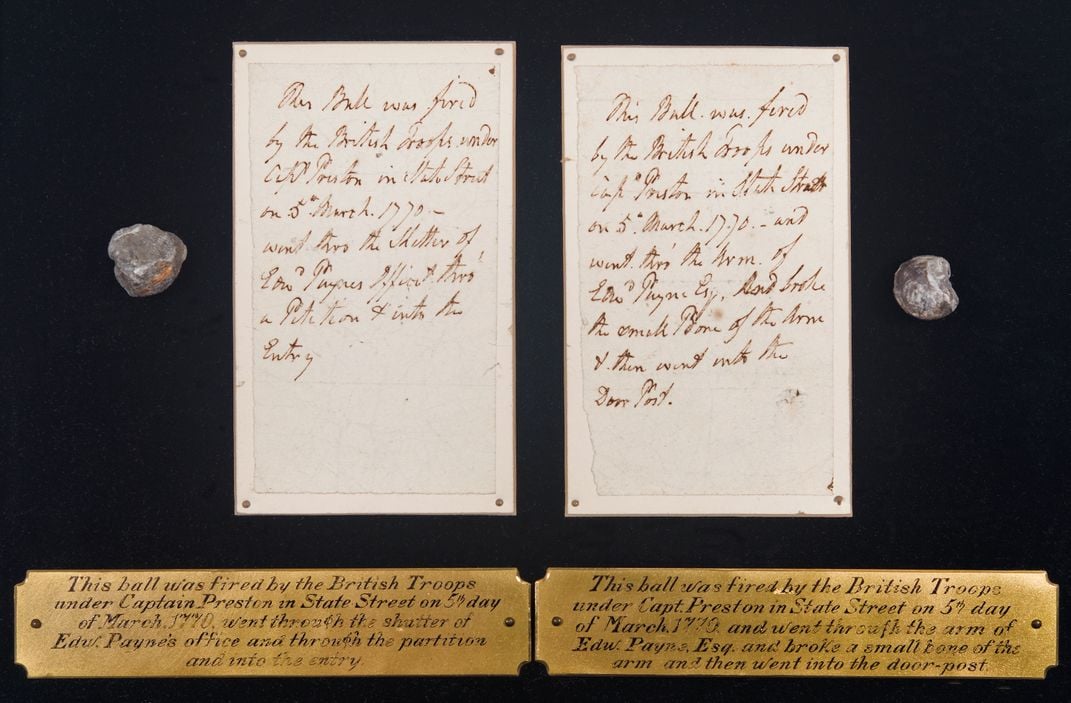 This Ball was fired
by the British Troops under
Capt Preston in State Street
on 5th March. 1770 –
went thro the Shutter of
Edwd Paynes Office & thro'
a Petition & into the
Entry
This Ball was fired
by the British Troops under
Capt Preston in State Street
on 5th March. 1770. – and
went thro' the Arm of
Edwd Payne Esq. And broke
the small Bone of the Arm
& then went into the
Door Post.
This ball was fired by the British Troops
under Captain Preston in State Street on 5th day
of March, 1770, went through the shutter of
Edw. Payne's office and through the partition
and into the entry.
This ball was fired by the British Troops
under Capt. Preston in State Street on 5th day
of March, 1770, and went through the arm of
Edw. Payne, Esq. and broke a small bone of the
arm and then went into the door-post.